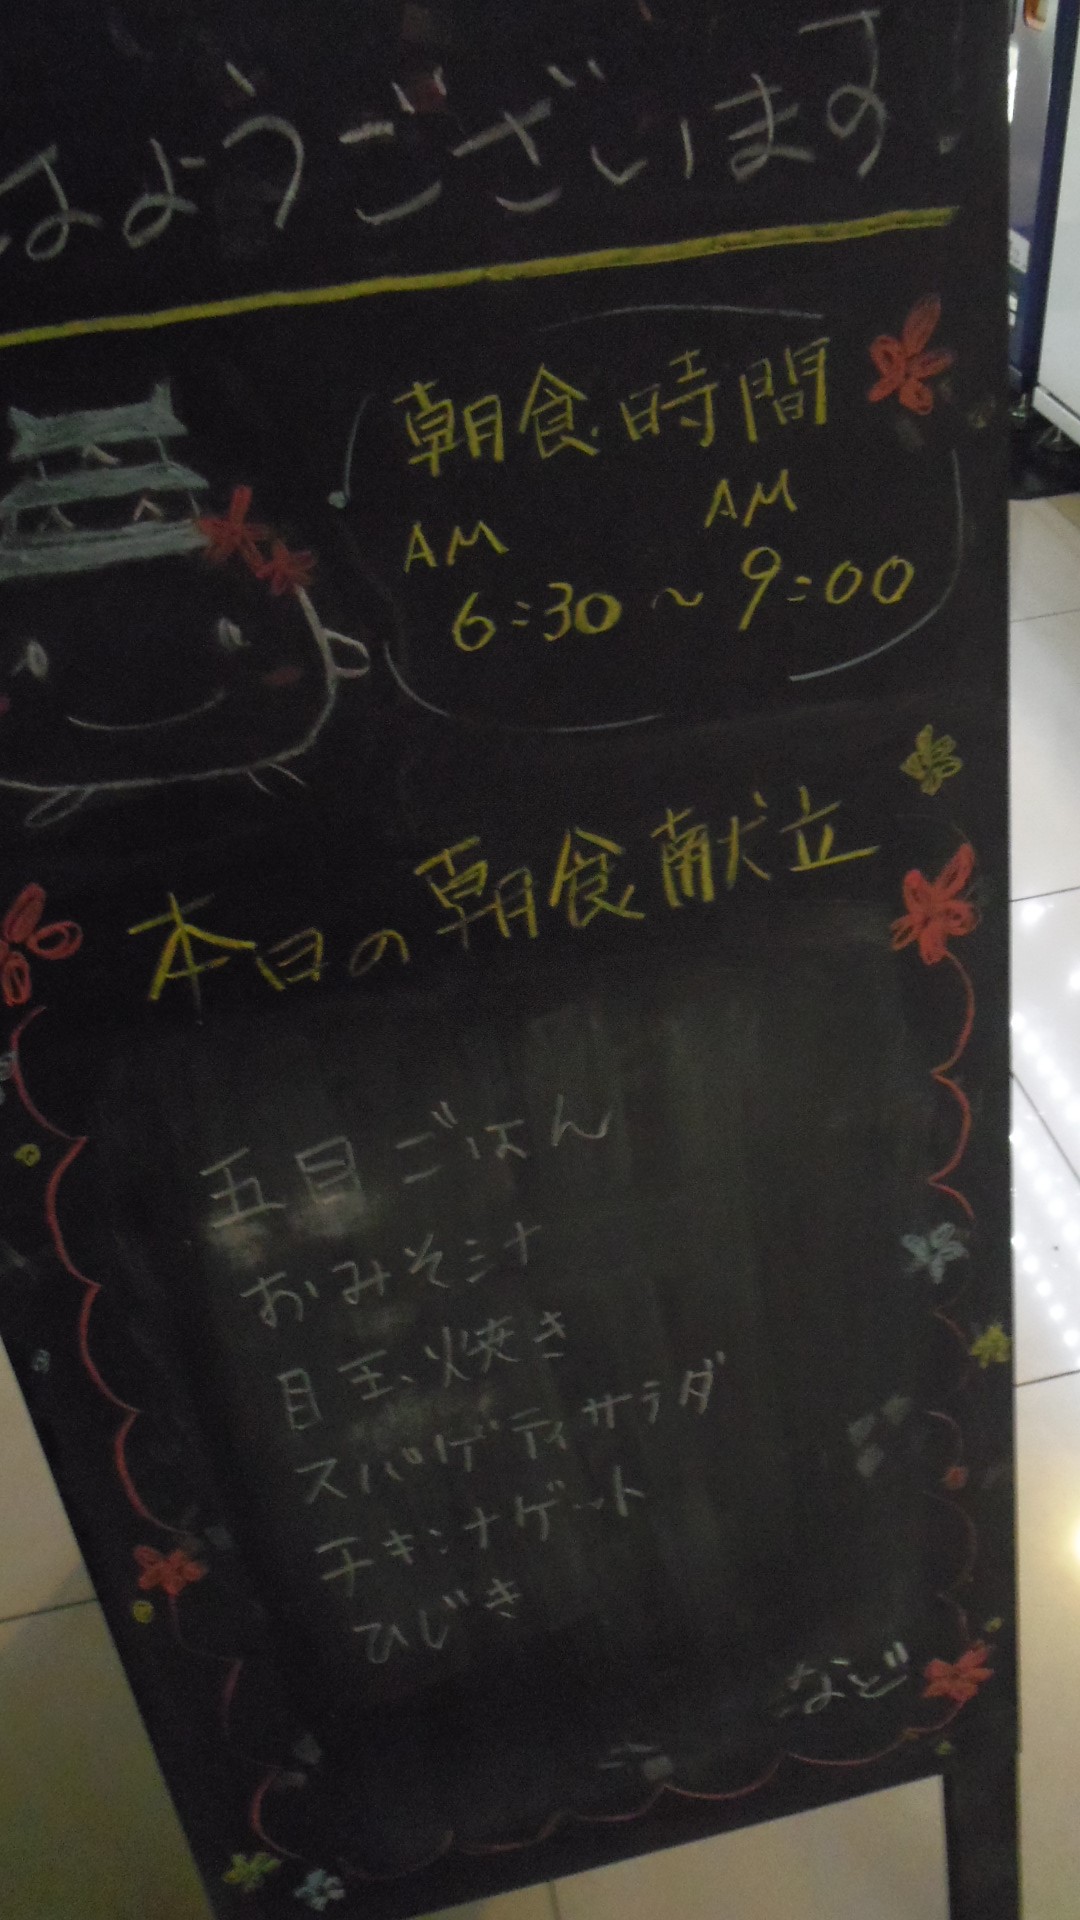 はようございます.
朝食時間
AM AM
6:30 ～ 9:00
本日の朝食献立
五目ごはん
おみそ汁
目玉焼き
スパゲティサラダ
チキンナゲット
ひじき
など